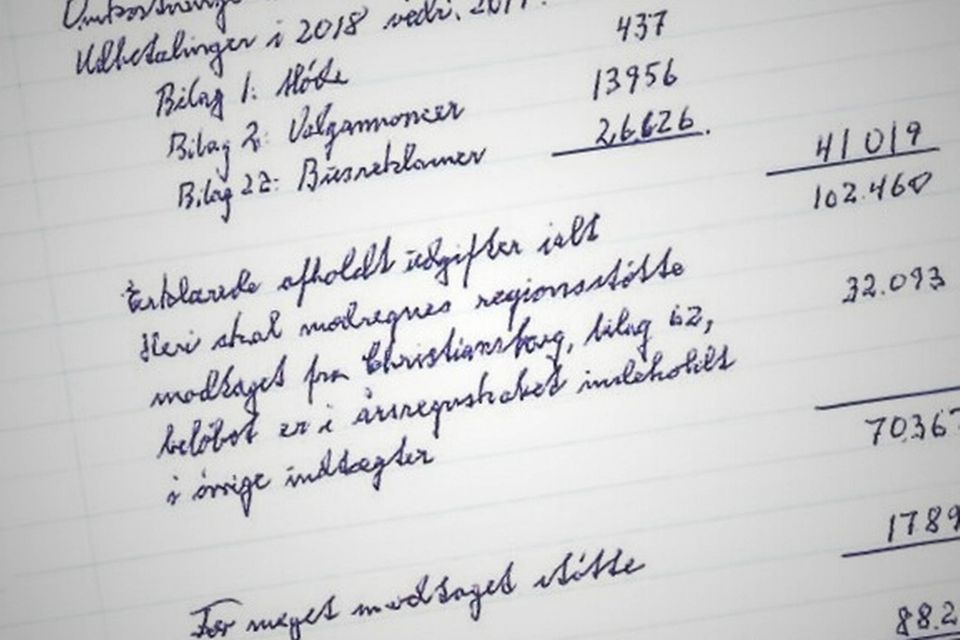 Udbetalinger i 2018 vedr. 2017.
Bilag 1: Møde 437
Bilag 2: Valgannoncer 13956
Bilag 22: Busreklamer 26.626. 41019
102.460
Erklærede afholdt udgifter ialt
Heri skal modregnes regionsstøtte 32.093
modtaget fra Christiansborg, bilag 62,
beløbet er i årsregnskabet indeholdt
i øvrige indtægter 70.367
1789
For meget modtaget støtte 88.2